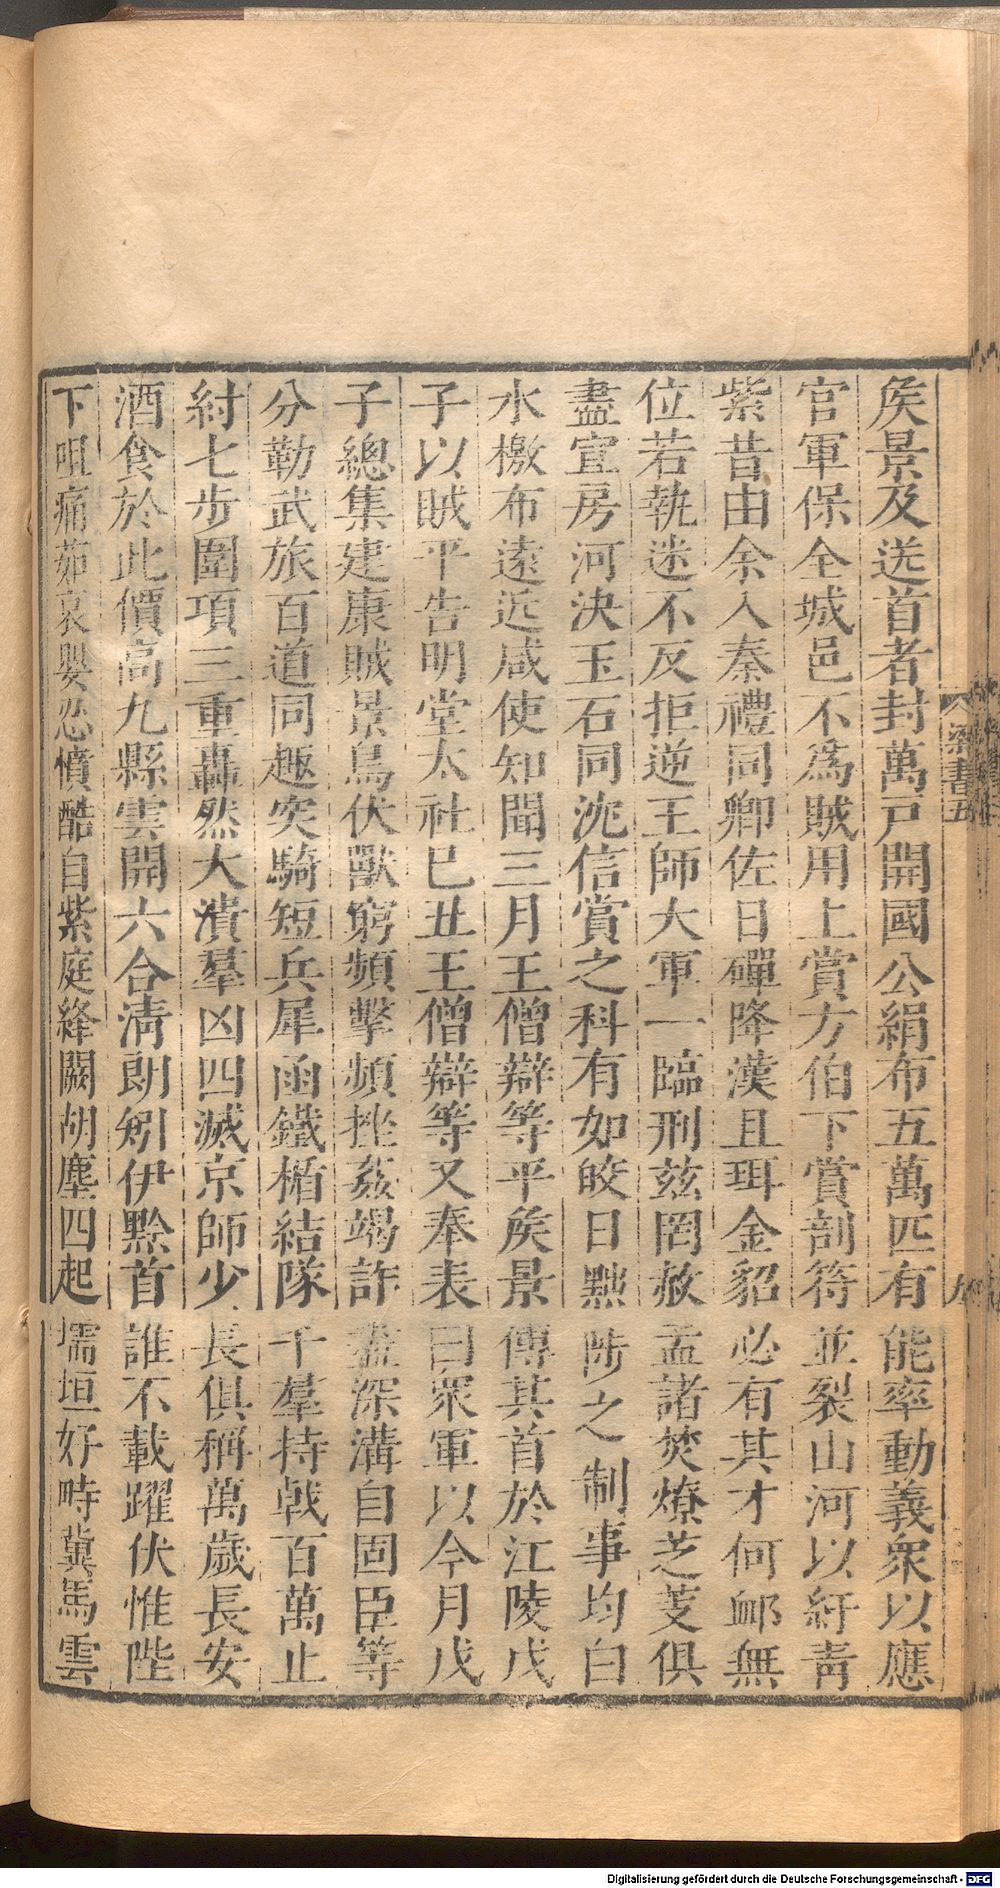 矦景及送首者封萬戸開國公絹布五萬匹有能率動義衆以應
官軍保全城邑不爲賊用上賞方伯下賞剖符並裂山河以紆青
紫昔由余入秦禮同卿佐日磾降漢且珥金貂必有其才何䘏無
位若執迷不反拒逆王師大軍一臨刑兹罔赦孟諸焚燎芝艾俱
盡宣房河決玉石同沈信賞之科有如皎日黜陟之制事均白
水檄布遠近咸使知聞三月王僧辯等平矦景傳其首於江陵戊
子以賊平告明堂太社已丑王僧辯等又奉表曰衆軍以今月戊
子總集建康賊景鳥伏獸窮頻擊頻挫姦竭詐盡深溝自固臣等
分勒武旅百道同趣突騎短兵犀函鐵楯結隊千羣持戟百萬止
紂七步圍項三重轟然大潰羣凶四滅京師少長俱稱萬歲長安
酒食於此價高九縣雲開六合淸朗矧伊黔首誰不載躍伏惟陛
下咀痛茹哀嬰忿憤酷自紫庭絳闕胡塵四起壖垣好畤冀馬雲
梁書五
九
Digitalisierung gefördert durch die Deutsche Forschungsgemeinschaft - DFG